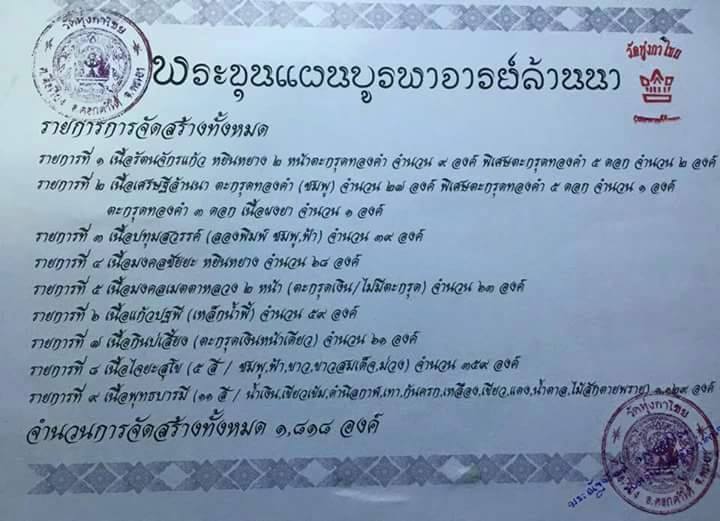 วัดทุ่งกาไชย
วัดทุ่งกาไชย
พระขุนแผนบูรพาจารย์ล้านนา
รายการการจัดสร้างทั้งหมด
รายการที่ ๑ เนื้อรัตนจักรแก้ว หยินหยาง ๒ หน้าตะกรุดทองคำ จำนวน ๙ องค์ พิเศษตะกรุดทองคำ ๕ ดอก จำนวน ๒ องค์
รายการที่ ๒ เนื้อเศรษฐีล้านนา ตะกรุดทองคำ (ชมพู) จำนวน ๒๗ องค์ พิเศษตะกรุดทองคำ ๕ ดอก จำนวน ๑ องค์
ตะกรุดทองคำ ๓ ดอก เนื้อผงยา จำนวน ๑ องค์
รายการที่ ๓ เนื้อปทุมสวรรค์ (ลองพิมพ์ ชมพู,ฟ้า) จำนวน ๓๙ องค์
รายการที่ ๔ เนื้อมงคลชัยยะ หยินหยาง จำนวน ๒๘ องค์
รายการที่ ๕ เนื้อมงคลเมตตาหลวง ๒ หน้า (ตะกรุดเงิน/ไม่มีตะกรุด) จำนวน ๒๓ องค์
รายการที่ ๖ เนื้อแก้วปฐพี (เหล็กน้ำพี้) จำนวน ๕๙ องค์
รายการที่ ๗ เนื้อกินบ่เสี้ยง (ตะกรุดเงินหน้าเดียว) จำนวน ๖๑ องค์
รายการที่ ๘ เนื้อไจยะสุโข (๕ สี / ชมพู,ฟ้า,ขาว,ขาวสมเด็จ,ม่วง) จำนวน ๓๕๙ องค์
รายการที่ ๙ เนื้อพุทธบารมี (๑๑ สี / น้ำเงิน,เขียวเข้ม,ดำนิลกาฬ,เทา,ก้นครก,เหลือง,เขียว,แดง,น้ำตาล,ไม้สักตายพราย) ๑,๑๒๙ องค์
จำนวนการจัดสร้างทั้งหมด ๑,๘๑๘ องค์
วัดทุ่งกาไชย